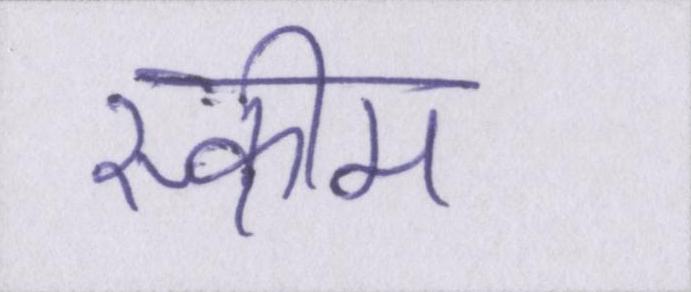 स्कीम